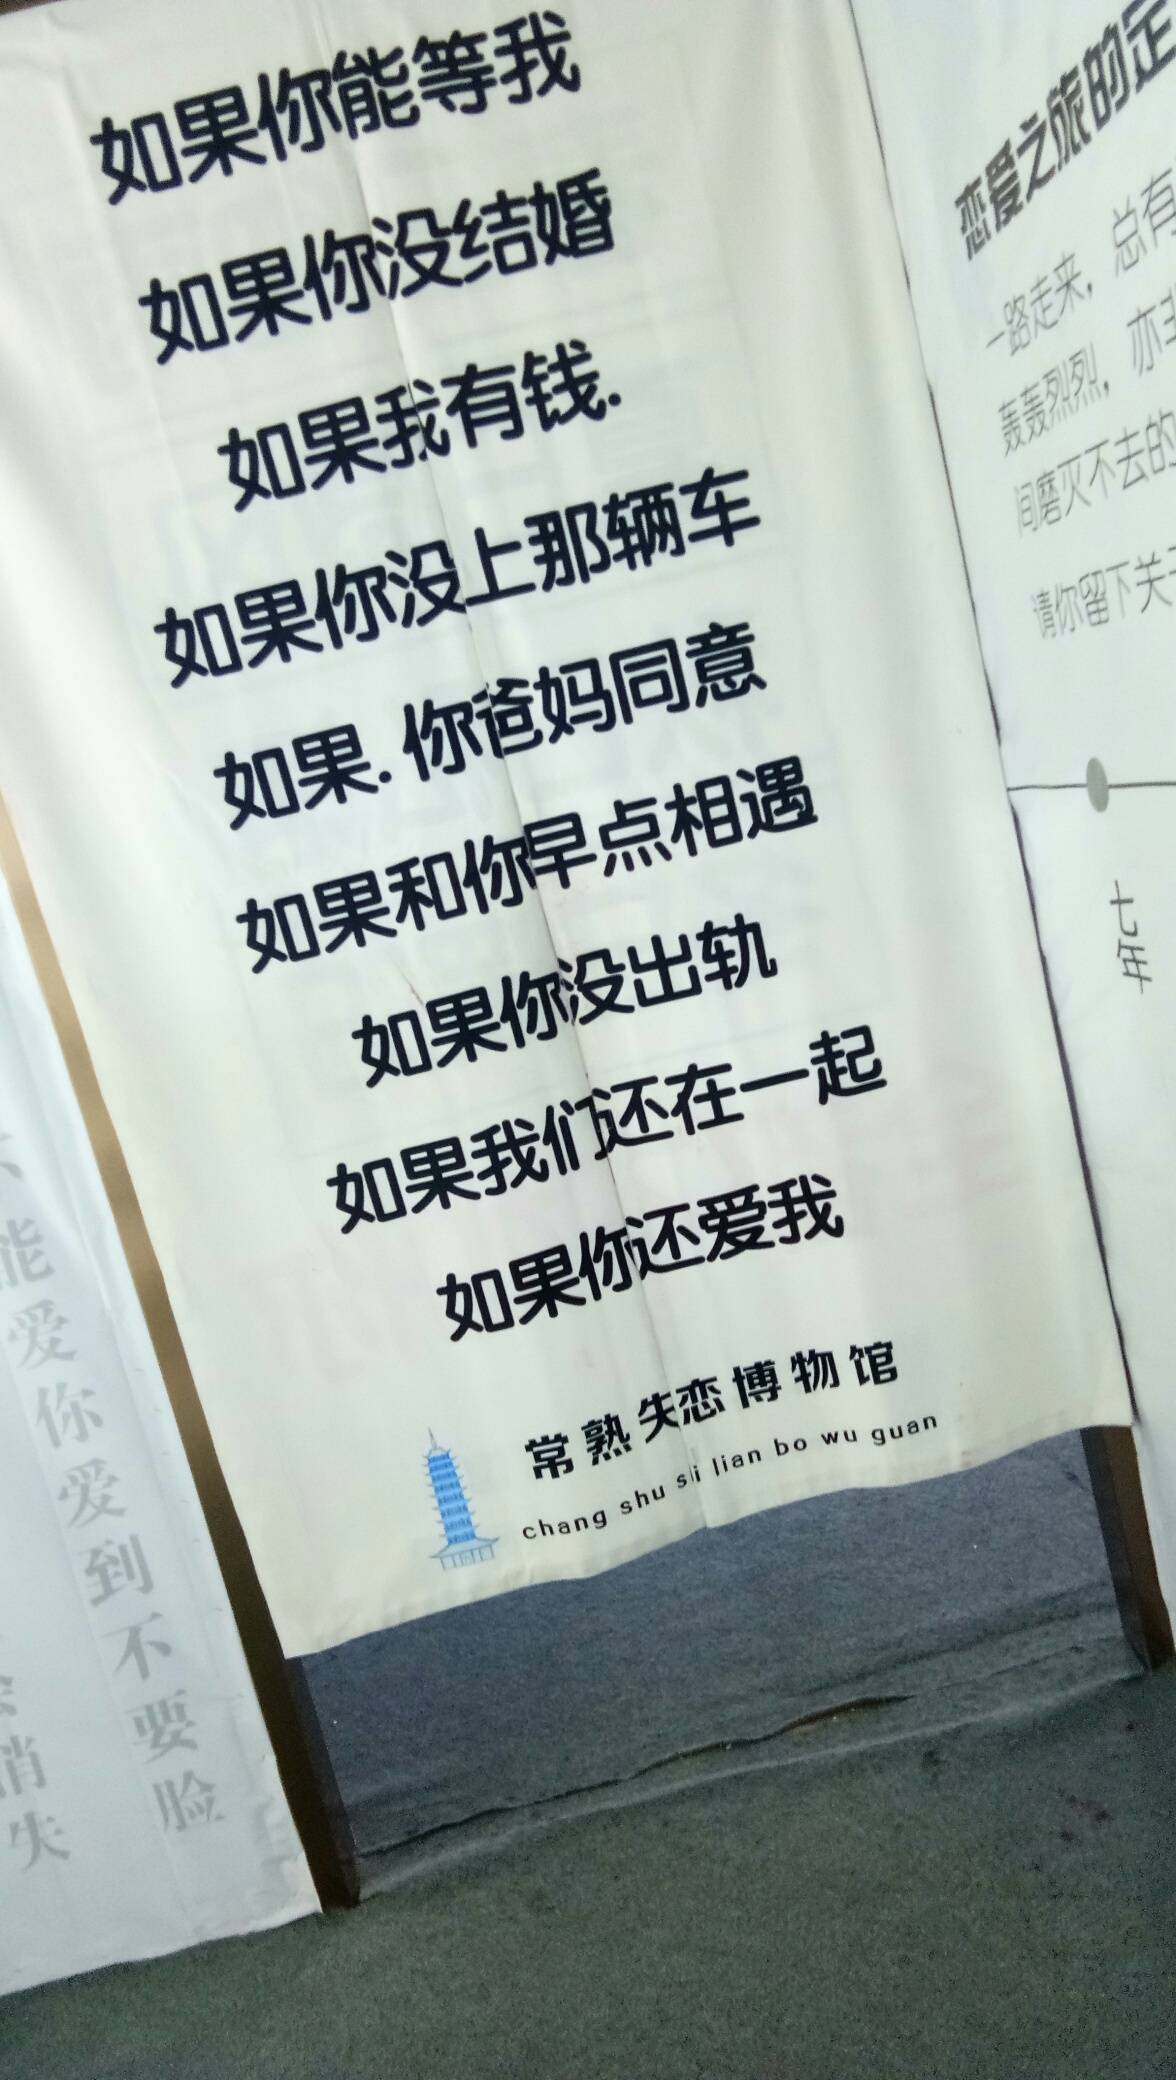 如果你能等我
如果你没结婚
如果我有钱.
如果你没上那辆车
如果.你爸妈同意
如果和你早点相遇
如果你没出轨
如果我们还在一起
如果你还爱我
常熟失恋博物馆
chang shu shi lian bo wu guan
恋爱之旅的定
一路走来，总有
轰轰烈烈，亦非
间磨灭不去的
请你留下关于
七年
能爱你爱到不要脸
消失